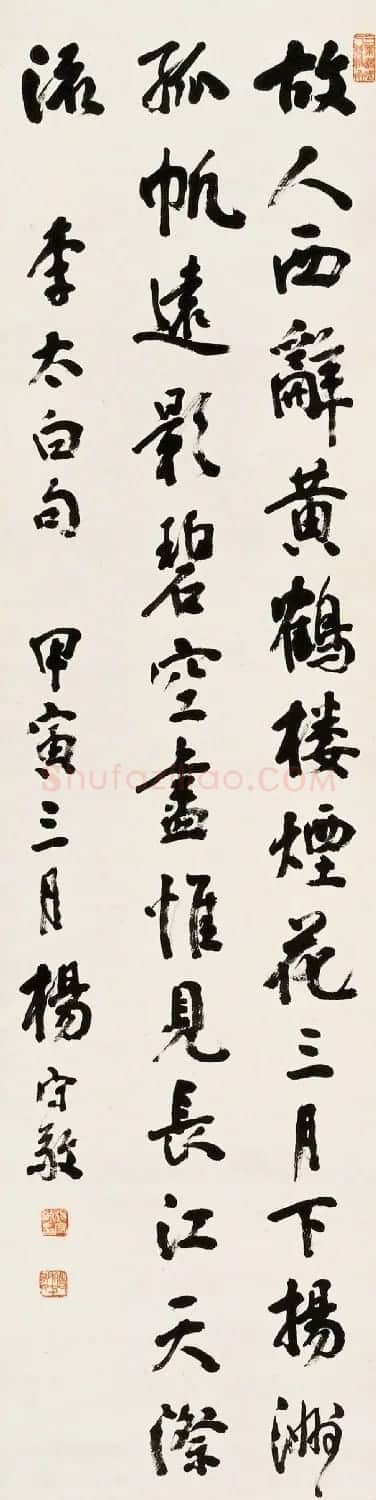 故人西辭黃鶴楼煙花三月下揚洲
孤帆遠影碧空盡惟見長江天際
流 李太白句 甲寅三月楊守敬
Shufazidao.COM